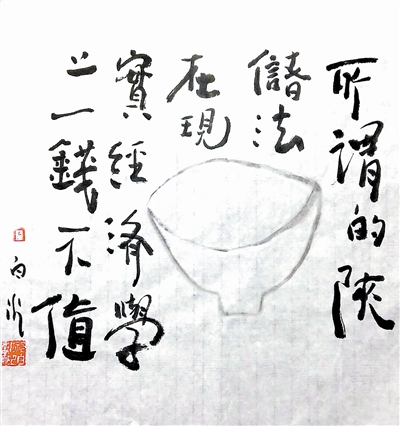 所謂的陝
儲法
在現
實經濟學
上一錢不值
白